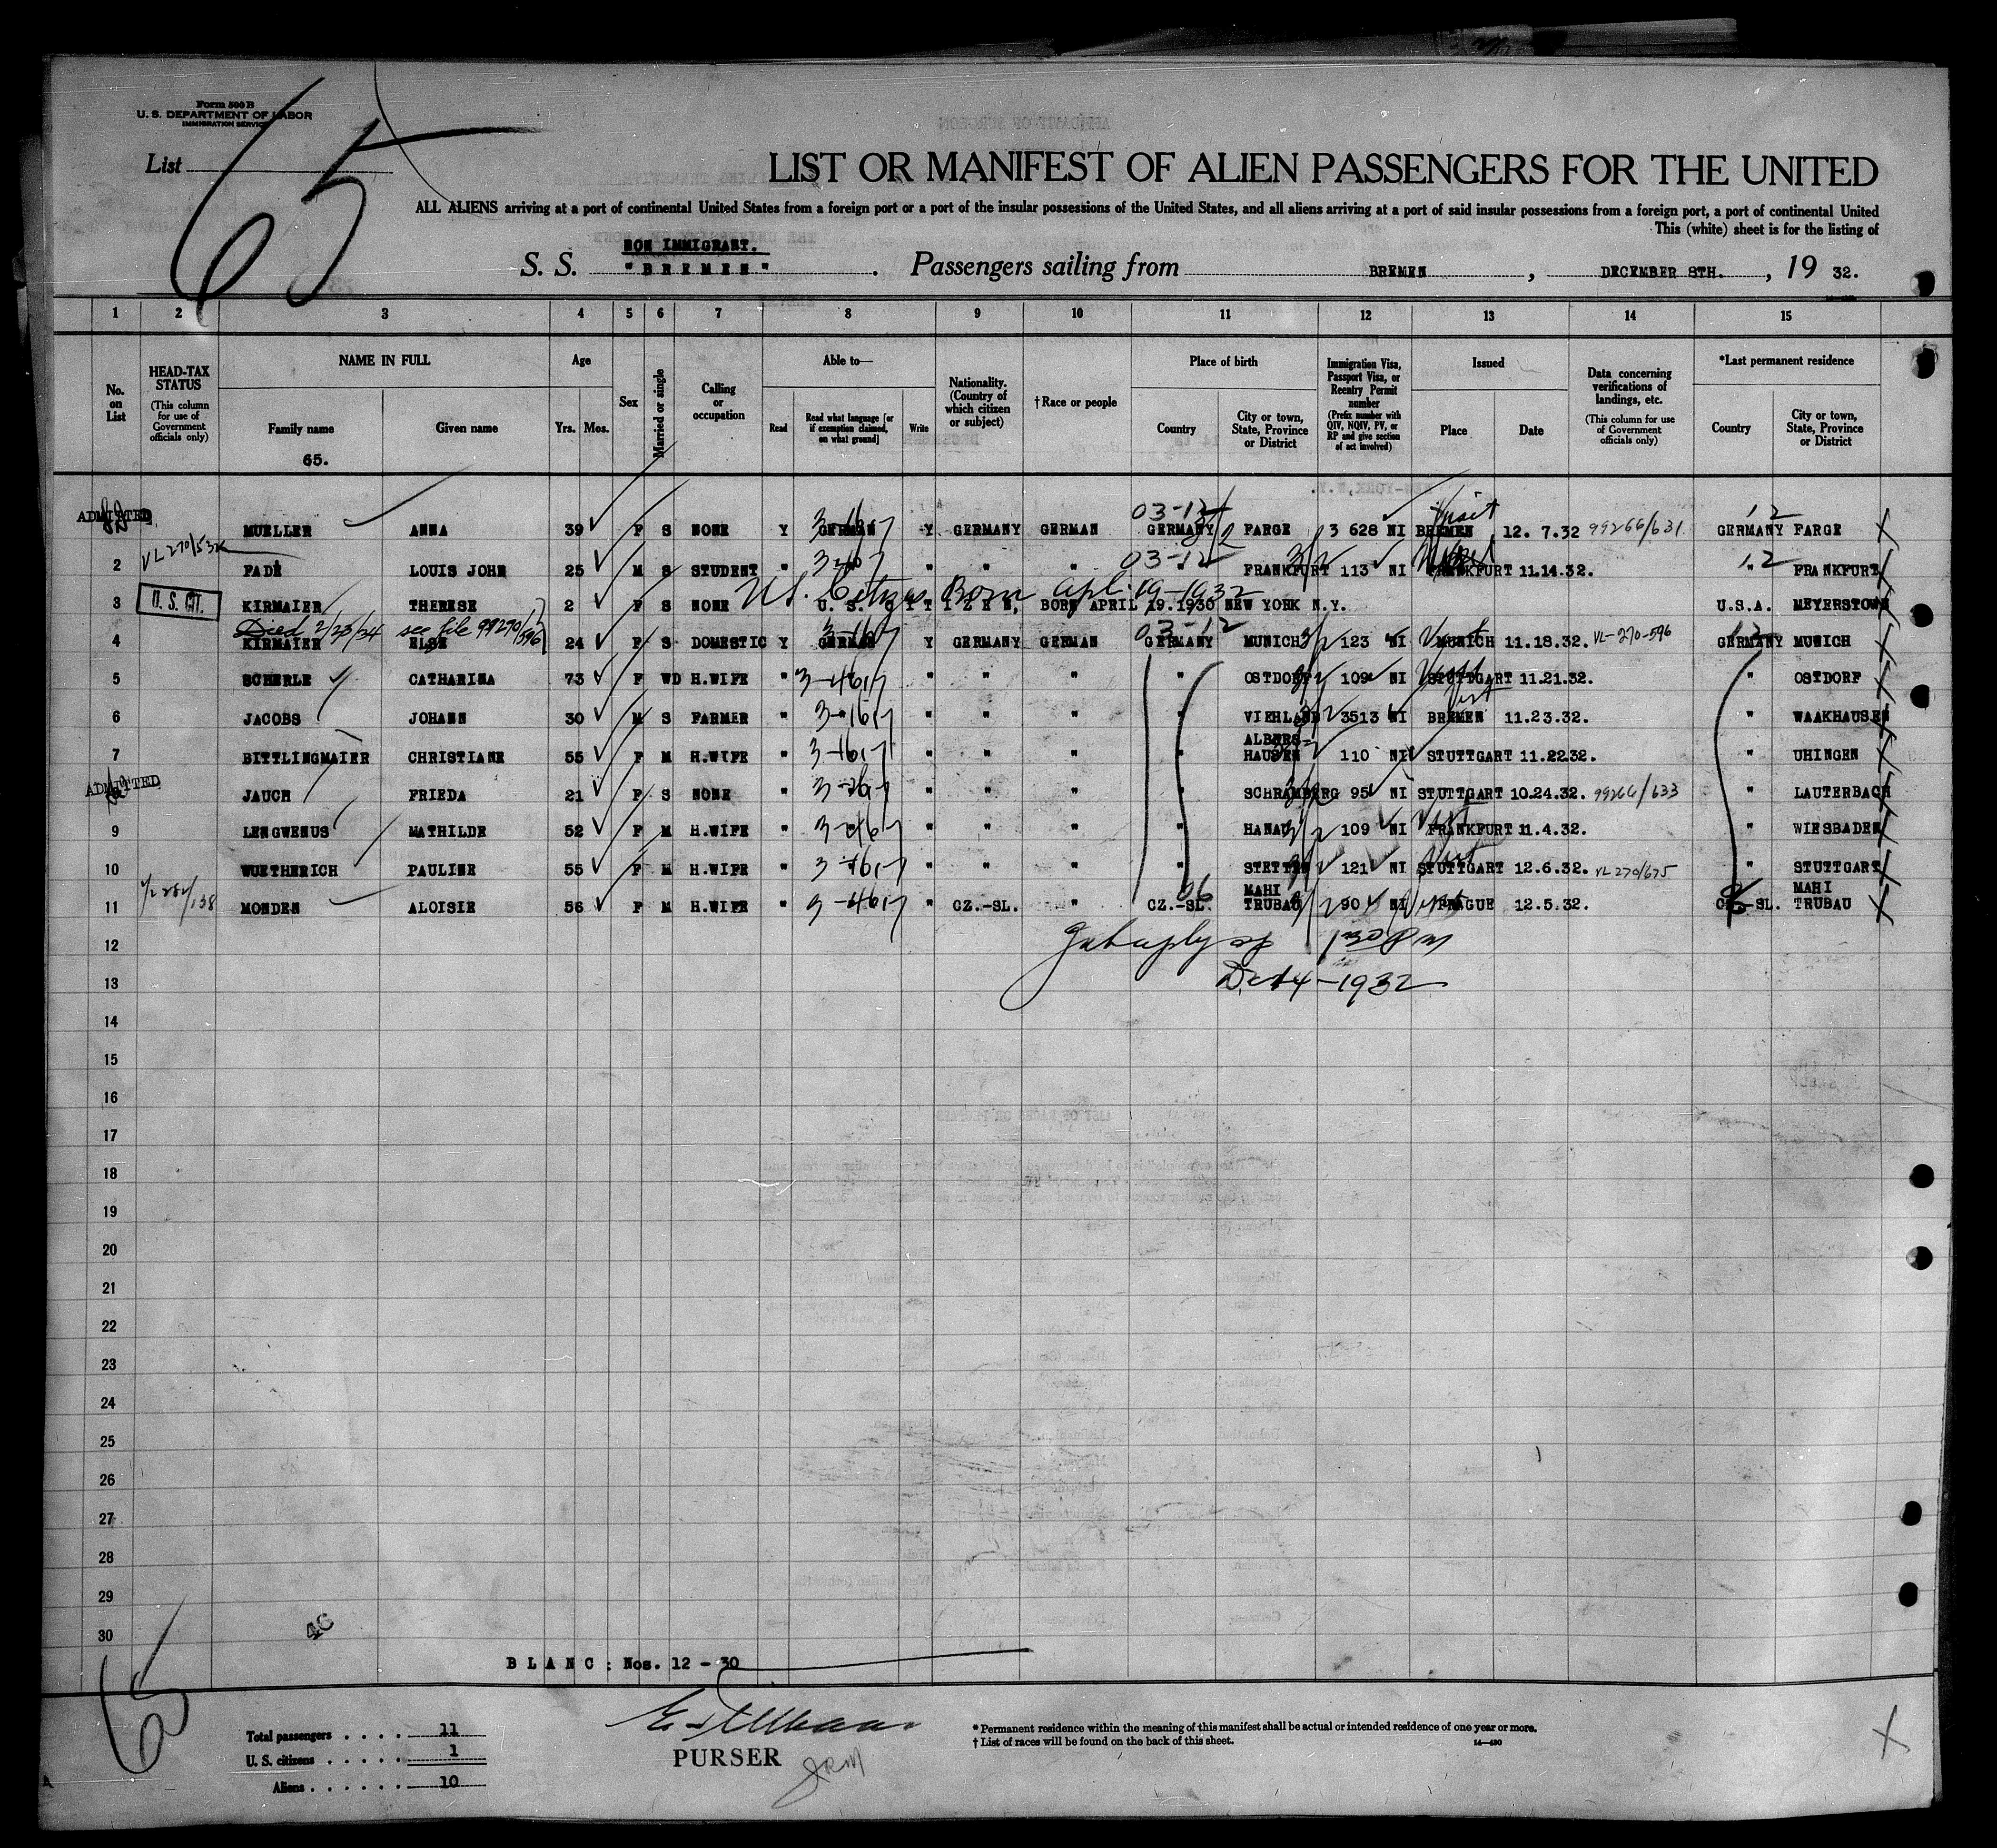 Form 500 B
U. S. DEPARTMENT OF LABOR
IMMIGRATION SERVICE
List
65
LIST OR MANIFEST OF ALIEN PASSENGERS FOR THE UNITED
ALL ALIENS arriving at a port of continental United States from a foreign port or a port of the insular possessions of the United States, and all aliens arriving at a port of said insular possessions from a foreign port, a port of continental United
This (white) sheet is for the listing of
NON IMMIGRANT.
S. S. "BREMEN" . Passengers sailing from BREMEN , DECEMBER 8TH. , 19 32.
1 2 3 4 5 6 7 8 9 10 11 12 13 14 15
No. on List
HEAD-TAX STATUS (This column for use of Government officials only)
NAME IN FULL
Family name
65.
Given name
Age
Yrs. Mos.
Sex
Married or single
Calling or occupation
Able to—
Read
Read what language [or if exemption claimed, on what ground]
Write
Nationality. (Country of which citizen or subject)
†Race or people
Place of birth
Country
City or town, State, Province or District
Immigration Visa, Passport Visa, or Reentry Permit number (Prefix number with QIV, NQIV, PV, or RP and give section of act involved)
Issued
Place
Date
Data concerning verifications of landings, etc. (This column for use of Government officials only)
*Last permanent residence
Country
City or town, State, Province or District
03-12 Visit 12
ADMITTED MUELLER ANNA 39 F S NONE Y GERMAN Y GERMANY GERMAN GERMANY FARGE 3 628 NI BREMEN 12.7.32 99266/631 GERMANY FARGE
VL 270/532 03-12 12
2 FADÉ LOUIS JOHN 25 M S STUDENT " " " " FRANKFURT 113 NI FRANKFURT 11.14.32. " FRANKFURT
US. Citizen Born Apl. 19-1932
3 U. S. CIT. KIRMAIER THERESE 2 F S NONE U. S. CITIZEN, BORN APRIL 19.1930 NEW YORK N.Y. U.S.A. MEYERSTOWN
Died 2/23/34 see file 99270/596 03-12 12
4 KIRMAIER ELSE 24 F S DOMESTIC Y GERMAN Y GERMANY GERMAN GERMANY MUNICH 123 NI MUNICH 11.18.32. VL-270-596 GERMANY MUNICH
5 SCHERLE CATHARINA 73 F WD H.WIFE " " " " " OSTDORF 109 NI STUTTGART 11.21.32. " OSTDORF
6 JACOBS JOHANN 30 M S FARMER " " " " " VIEHLAND 3513 NI BREMEN 11.23.32. " WAAKHAUSEN
7 BITTLINGMAIER CHRISTIANE 55 F M H.WIFE " " " " " ALBERS-HAUSEN 110 NI STUTTGART 11.22.32. " UHINGEN
ADMITTED JAUCH FRIEDA 21 F S NONE " " " " " SCHRAMBERG 95 NI STUTTGART 10.24.32. 99266/633 " LAUTERBACH
9 LENGWENUS MATHILDE 52 F M H.WIFE " " " " " HANAU 109 NI FRANKFURT 11.4.32. " WIESBADEN
10 WUETHERICH PAULINE 55 F M H.WIFE " " " " " STETTEN 121 NI STUTTGART 12.6.32. VL 270/675 " STUTTGART
11 MONDEN ALOISIE 56 F M H.WIFE " " CZ.-SL. " CZ.-SL. MAHI TRUBAU 90 NI PRAGUE 12.5.32. CZ.-SL. MAHI TRUBAU
12 1 30 PM
13 Dec 14-1932
14
15
16
17
18
19
20
21
22
23
24
25
26
27
28
29
30
40
BLANC: Nos. 12 - 30
65
Total passengers . . . . 11
U. S. citizens . . . . . 1
Aliens . . . . . . 10
PURSER
* Permanent residence within the meaning of this manifest shall be actual or intended residence of one year or more.
† List of races will be found on the back of this sheet.
14—430